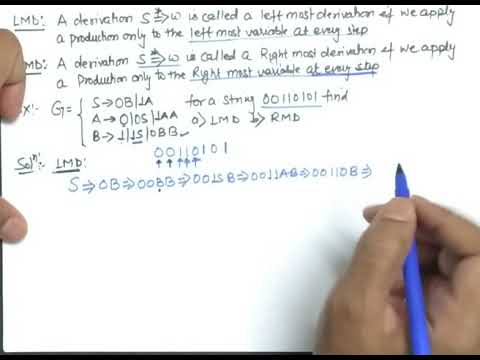 LMD: A derivation S ⇒* w is called a left most derivation if we apply
a production only to the left most variable at every step
RMD: A derivation S ⇒* w is called a Right most derivation if we apply
a Production only to the Right most variable at every step
EX:- G = { S → 0B|1A for a string 00110101 find
A → 0|0S|1AA a) LMD b) RMD
B → 1|1S|0BB ✓
00110101
Soln: LMD:
S ⇒ 0B ⇒ 00BB ⇒ 001SB ⇒ 0011AB ⇒ 00110B ⇒